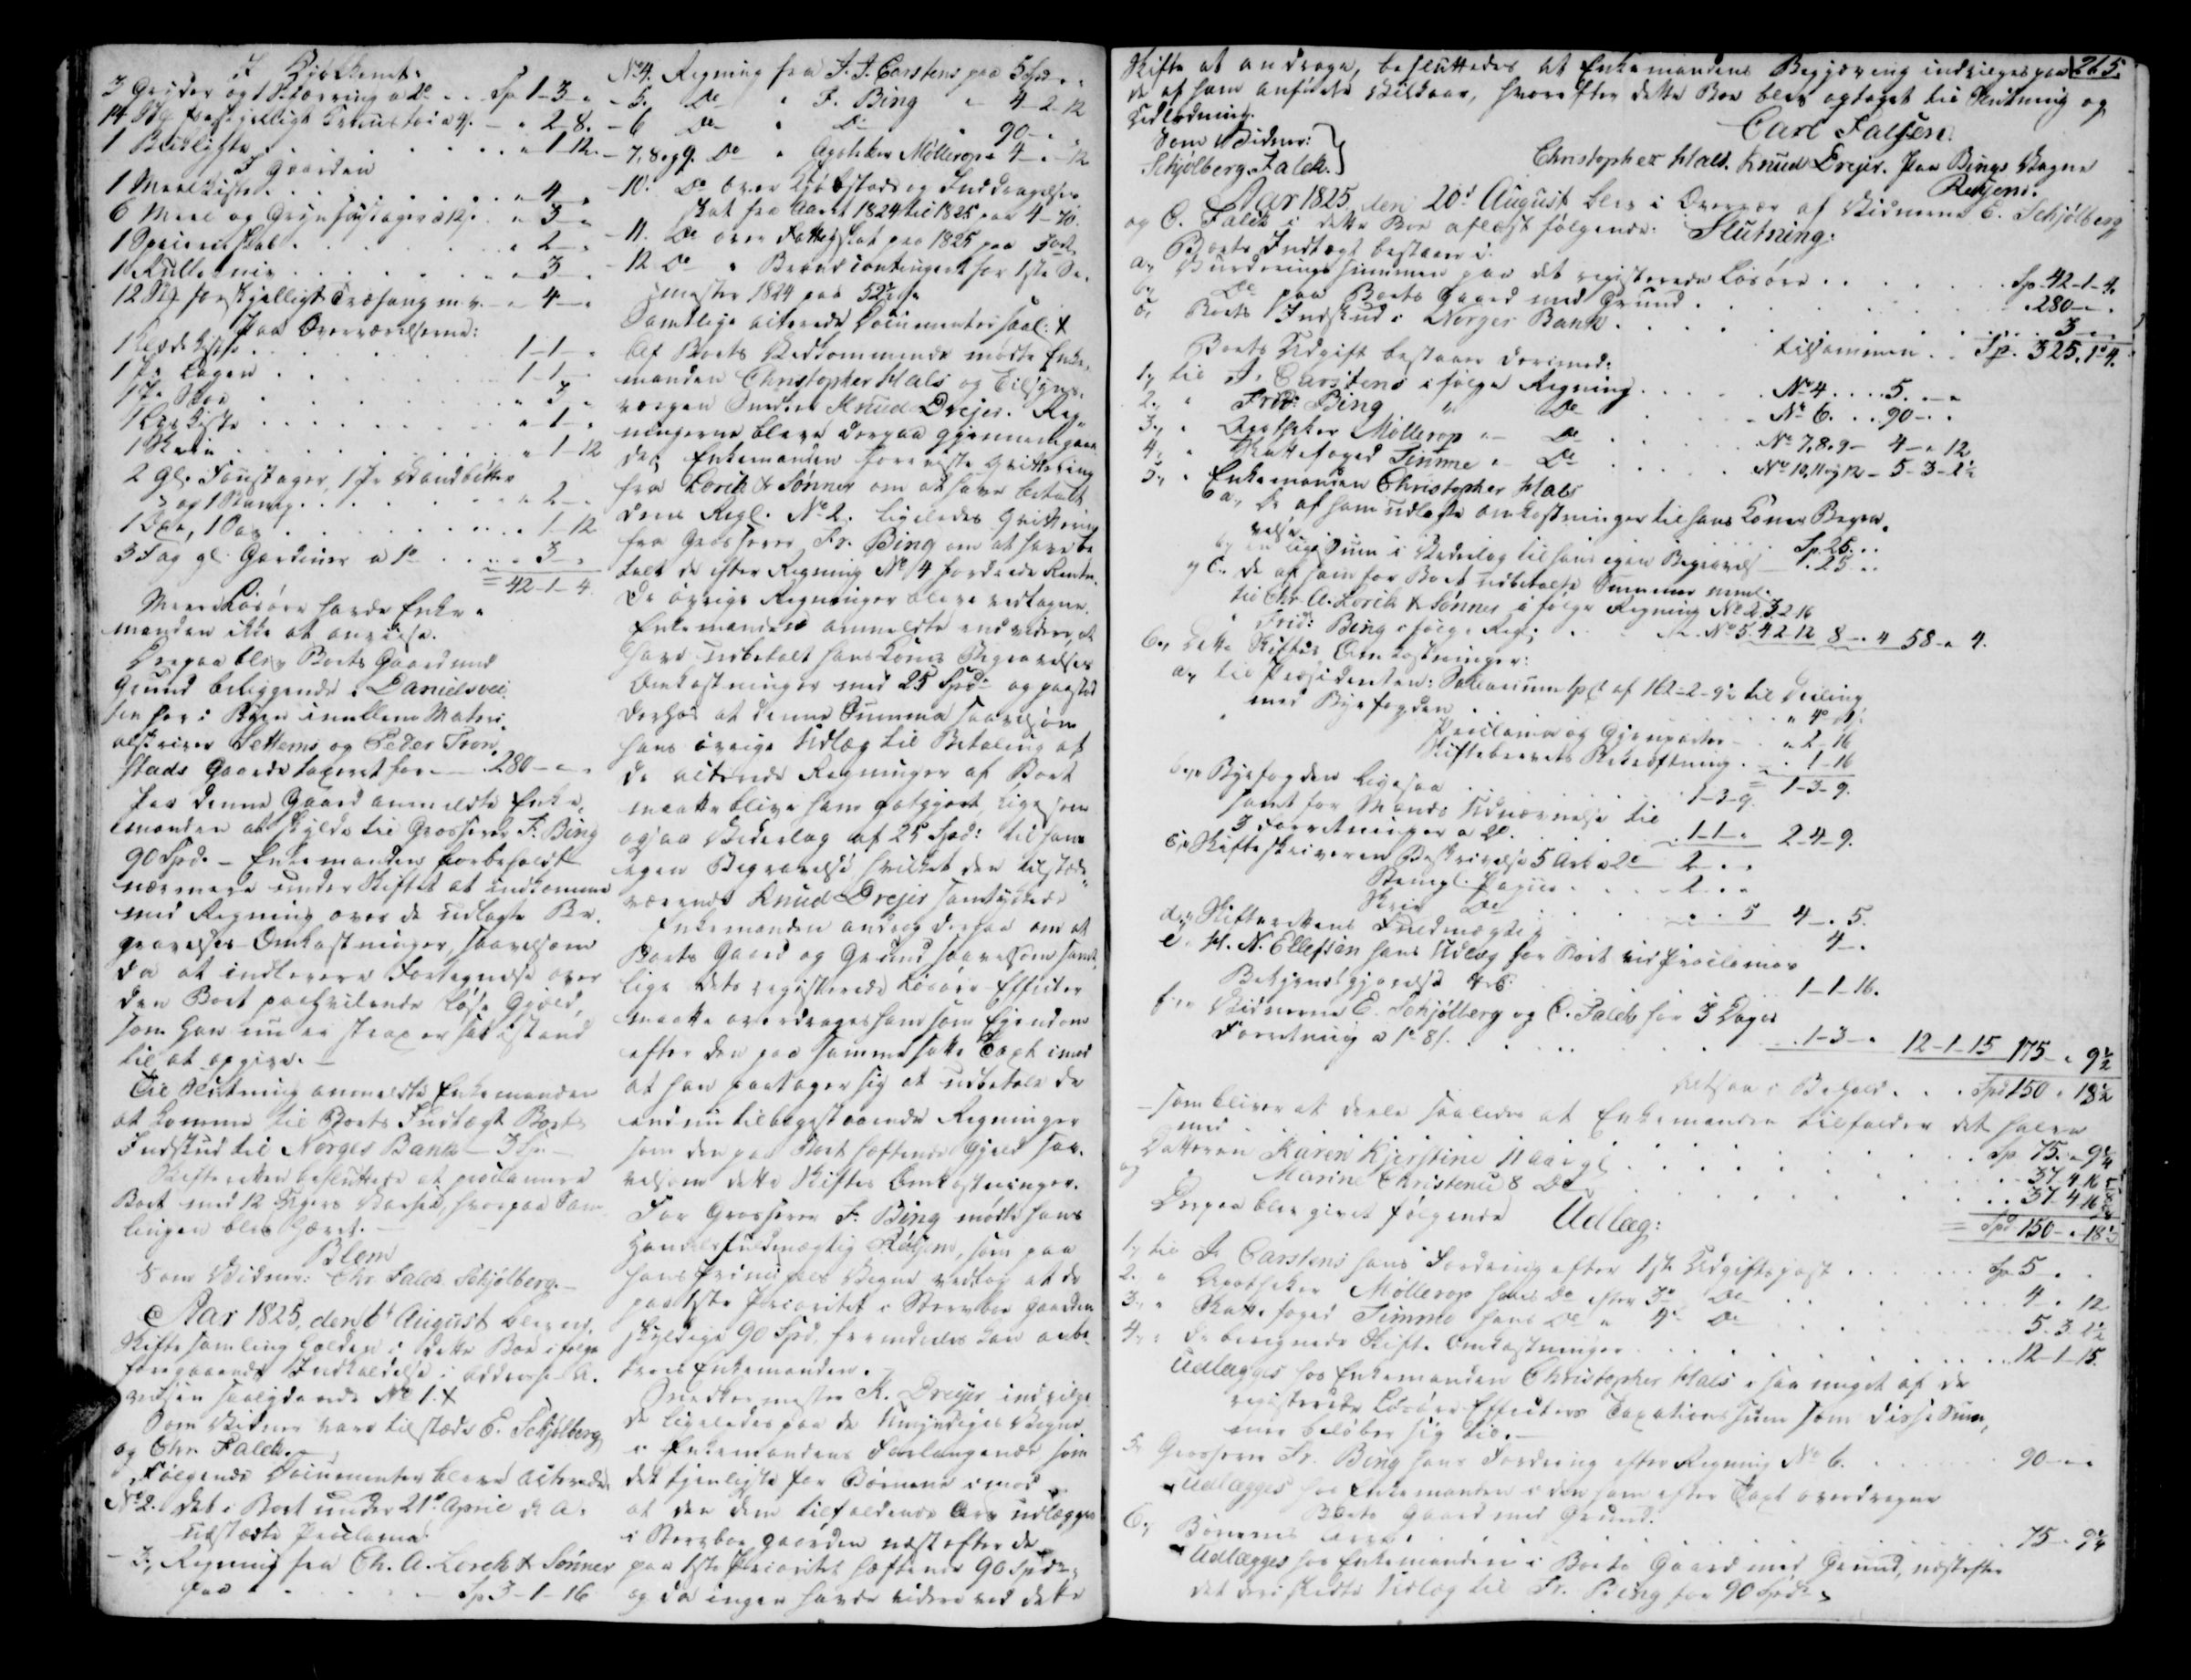 I Kjökkenet.
3 Gryder og 1 a 2d . . Sp 1-3 -
14 Stk forskjelligt a 4s. - " 2-8.
1 . . . . . " 1-12.
I Gaarden
1 Meelkiste . . . . . " 4 -
6 Meel og a 12s. . " 3 -
1 . . . . . " 2 -
1 Rullevriv . . . . . " 3 -
12 Stk forskjelligt Træfang m. v. - " 4 -
Paa Overværelserne:
1 Klædekiste . . . . . 1-1- "
1 Pr Lagen . . . . . 1-1- "
1 Pr . . . . . " 3 -
1 kiste . . . . . " 1 -
1 . . . . . " 1-12
2 gl. 1 Pr Vandbötter
og 1 . . . . . " 2 -
1 1 . . . . . " 1-12
3 Fag gl. Gardiner a 1d . . . " 3 -
= 42-1-4.
Meere Lösöre havde Enke-
manden ikke at anviise.
Derpaa blev Boets Gaard med
Grund beliggende i Danielsvei-
ten her i Byen imellem Materi-
alskriver Settems og Peder Tron-
stads Gaarde taxeret for - 280 - " -
Paa denne Gaard anmeldte Enke-
manden at skylde til Grosserer F. Bing
90 Spd. - Enkemanden forbeholdt
nærmere under Skiftet at indkomme
med Regning over de udlagte Be-
gravelses Omkostninger, saavelsom
da at indlevere Fortegnelse over
den Boet paahvilende löse Gjæld,
som han nu ei strax er sat istand
til at opgive. -
Til Slutning anmeldte Enkemanden
at komme til Boets Indtægt Boets
Indskud til Norges Bank - 3 Sp. -
Skifteretten besluttede at proclamere
Boet med 12 Ugers Varsel, hvorpaa Sam-
lingen blev hævet. -
Blom
Som Vidner: Chr. Falck. Schjølberg. -
Aar 1825, den 6te August blev ny
Skiftesamling holden i dette Boe i fölge
foregaaende Indkaldelse i Addresse A-
visen saalydende No 1. +
Som Vidner vare tilstæde E. Schjølberg
og Chr. Falck. -
Følgende Documenter bleve acterede.
No 2. det i Boet under 21de April d. A.
udstædte Proclama.
- 3, Regning fra Ch. A. Lorck & Sønner
paa . . . . - Sp 3-1-16
No 4. Regning fra J. J. Carstens paa 5 Spd. "
- 5. Do " F. Bing " - 4-2-12
- 6 Do " Do " 90 - " -
- 7, 8 og 9. Do " Apotheker Møllerop " 4 - " -12
- 10. Do over Kjöbstads og Inddragelses
skat fra Aaret 1824 til 1825 paa 4-70.
- 11. Do over Fattigskat pro 1825 paa
- 12 Do " Brandcontingent for 1ste Se-
mester 1824 paa 52½ s.
Samtlige acterede Documenter saal: +
Af Boets Vedkommende mødte Enke-
manden Christopher Hals og Tilsyns-
værgen Knud Drejer. Reg-
ningerne bleve derpaa gjennemgaae-
de; Enkemanden foreviste Qvittering
fra Lorck & Sønner om at have betalt
deres Regl. No 2. ligeledes Qvittering
fra Grosserer Fr. Bing om at have be-
talt de efter Regning No 4 fordrede Renter.
De øvrige Regninger bleve vedtagne.
Enkemanden anmeldte endvidere, at
have udbetalt hans Kones Begravelses
Omkostninger med 25 Spd: og paastod
derhos at denne Summa saavelsom
hans øvrige Udlæg til Betaling af
de acterede Regninger af Boet
maatte blive ham godtgjort, lige som
ogsaa Vederlag af 25 Spd: til hans
egen Begravelse, hvilket den tilstæde-
værende Knud Drejer samtykkede.
Enkemanden androg derpaa om at
Boets Gaard og Grund saavelsom samt-
lige dets registrerede Lösöre Effecter
maatte overdrages ham som Eiendom
efter den paa samme satte Taxt imod
at han paatager sig at udbetale de
endnu tilbagestaaende Regninger
som den paa Boet heftende Gjæld saa-
velsom dette Skiftes Omkostninger.
For Grosserer F. Bing mødte hans
Handelsfuldmægtig , som paa
hans Principals Vegne vedtog at de
paa 1ste Prioritet i Stervboe Gaarden
skyldige 90 Spd. fremdeles kan anbe-
troes Enkemanden.
mester K. Drejer indvilge-
de ligeledes paa de Umyndiges Vegne
i Enkemandens Forlangende som
det tjenligste for Børnene imod
at den dem tilfaldende Arv udlægges
i Stervboe gaarden næst efter de
paa 1ste Prioritet heftende 90 Spdr.,
og da ingen havde videre ved dette
265.
Skifte at andrage, besluttedes at Enkemandens Begjæring indvilges paa
de af ham anførte Vilkaar, hvorefter dette Boe blev optaget til Slutning og
Udlodning.
Carl Falsen.
Som Vidner:
Schjølberg. Falck.
Christopher Hals. Knud Drejer. Paa Bings Vegne
Aar 1825, den 20de August blev i Overvær af Vidnerne E. Schjølberg
og C. Falck i dette Boe aflæst følgende: Slutning:
Boets Indtægt bestaaer i:
a, Vurderings Summen paa det registrerede Lösöre . . . . Sp. 42-1-4.
b, Do paa Boets Gaard med Grund . . . . . " 280 - " .
c, Boets Indskud i Norges Bank . . . . . 3 - " -
tilsammen . . Sp. 325. 1 " 4.
Boets Udgift bestaaer derimod:
1, til J. Carstens i følge Regning . . . . No 4 . . . 5. - " -
2., " Frid: Bing " Do - No 6. . . 90 - " .
3., " Apotheker Møllerop " - Do . . . . No 7, 8, 9 - 4 - " 12
4., " Skattefoged Simme " - Do . . . . No 10, 11 og 12 - 5-3-1½
5., " Enkemanden Christopher Hals
a, De af ham udlagte Omkostninger til hans Kones Begra-
velse . . Sp. 25. . .
b, en lige Sum i Vederlag til hans egen Begravelse - ". 25 . .
c. de af ham for Boet udbetalte Summer neml.
til Chr. A. Lorck & Sønner i følge Regning No 2. 3. 2. 16
" Frid: Bing i følge Reg: . . No 5. 4. 2. 12 8 - " 4 58 - " 4.
6., Dette Skiftes Omkostninger:
a, til Præsidenten: Salarium ½ pCt af 112-2-9½ til Deeling
med Byefogden . . . . . " 4 "
Proclama og Gjenparter - . " 2-16
Skiftebrevets Bekræftning . . . 1-16
= 1-3-9.
b., " Byefogden ligesaa . . . 1-3-9.
samt for Mænds Udnævnelse til
3 Forretninger a 2d. . . . 1-1- " 2-4-9.
c., " Skifteskriveren Beskrivelse 5 Ark a 2d 2 . .
Stempl. Papiir . . . . - 2 . "
Skriv Do . . . . " . 5 4 - " 5.
d., " Skifterettens Fuldmægtig . . . . 4 - "
e, H. N. Ellefsen hans Udlæg for Boet ved Proclamas
Bekjendtgjørelse . . . 1-1-16.
f, " Vidnerne E. Schjølberg og C. Falck for 3 Dages
Forretning a 1d 8s. . . . . 1-3- " 12-1-15 175 - " 9½
altsaa i Behold . . . Spd 150 " 18½
- som bliver at deele saaledes at Enkemanden tilfalder det halve
med . . . . . Sp. 75. " 9¼
og Datteren Karen Kjerstine 11 Aar gl. . . . . . 37-4-16⅝
Marine Christence 8 Do . . . . . 37-4-16⅝
= Spd 150 - " 18½
Derpaa blev givet følgende Udlæg:
1, til J. Carstens hans Fordring efter 1ste Udgiftspost . . . . Sp 5 " .
2. " Apotheker Møllerop hans Do efter 3de Do . . . . 4 - " 12
3., " Skattefoged Simme hans Do " 4de Do . . . . 5-3-1½
4., " de beregnede Skifte Omkostninger . . . . . 12-1-15.
Udlægges hos Enkemanden Christopher Hals i saa meget af de
registrerede Lösöre Effecters Taxations Sum som disse Sum-
mer beløber sig til. -
5. Grosserer Fr. Bing hans Fordring efter Regning No 6. . . . . 90 - " -
Udlægges hos Enkemanden i den ham efter Taxt overdragne
Boets Gaard med Grund.
6., Børnenes Arv . . . . . 75 - " 9¼
Udlægges hos Enkemanden i Boets Gaard med Grund, næst efter
det deri skedte Udlæg til Fr. Bing for 90 Spdr.